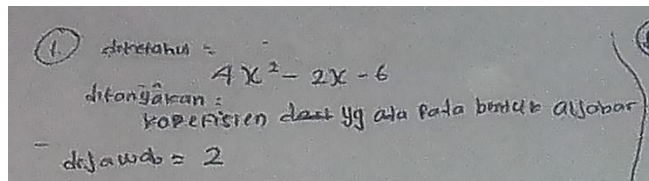 1. diketahui =
4x² - 2x - 6
ditanyakan :
koefisien yg ada pada bentuk aljabar
dijawab = 2